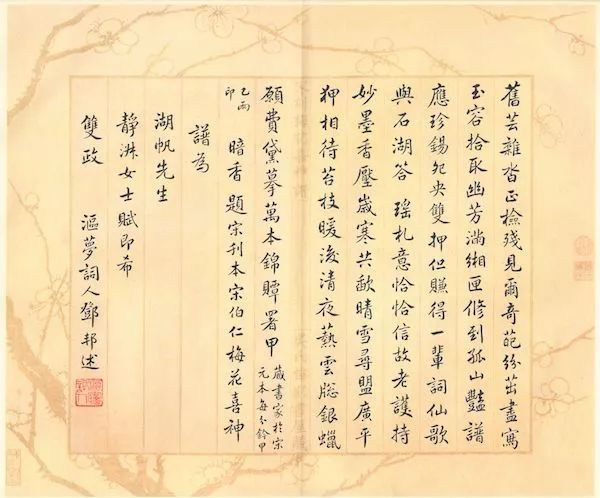 舊芸雜沓正檢殘見爾奇葩紛茁畫寫
玉容拾取幽芳滿緗匣修到孤山豔譜
應珍錫夗央雙押但賺得一輩詞仙歌
與石湖答 瑤札意恰恰信故老護持
妙墨香壓歲寒共歃晴雪尋盟廣平
狎相待苔枝暖後清夜爇雲牕銀蠟
願費黛摹萬本錦贉署甲 藏書家於宋元本每分鈐甲
乙兩印 暗香題宋刊本宋伯仁梅花喜神
譜為
湖帆先生
靜淑女士賦即希
雙政 漚夢詞人鄧邦述